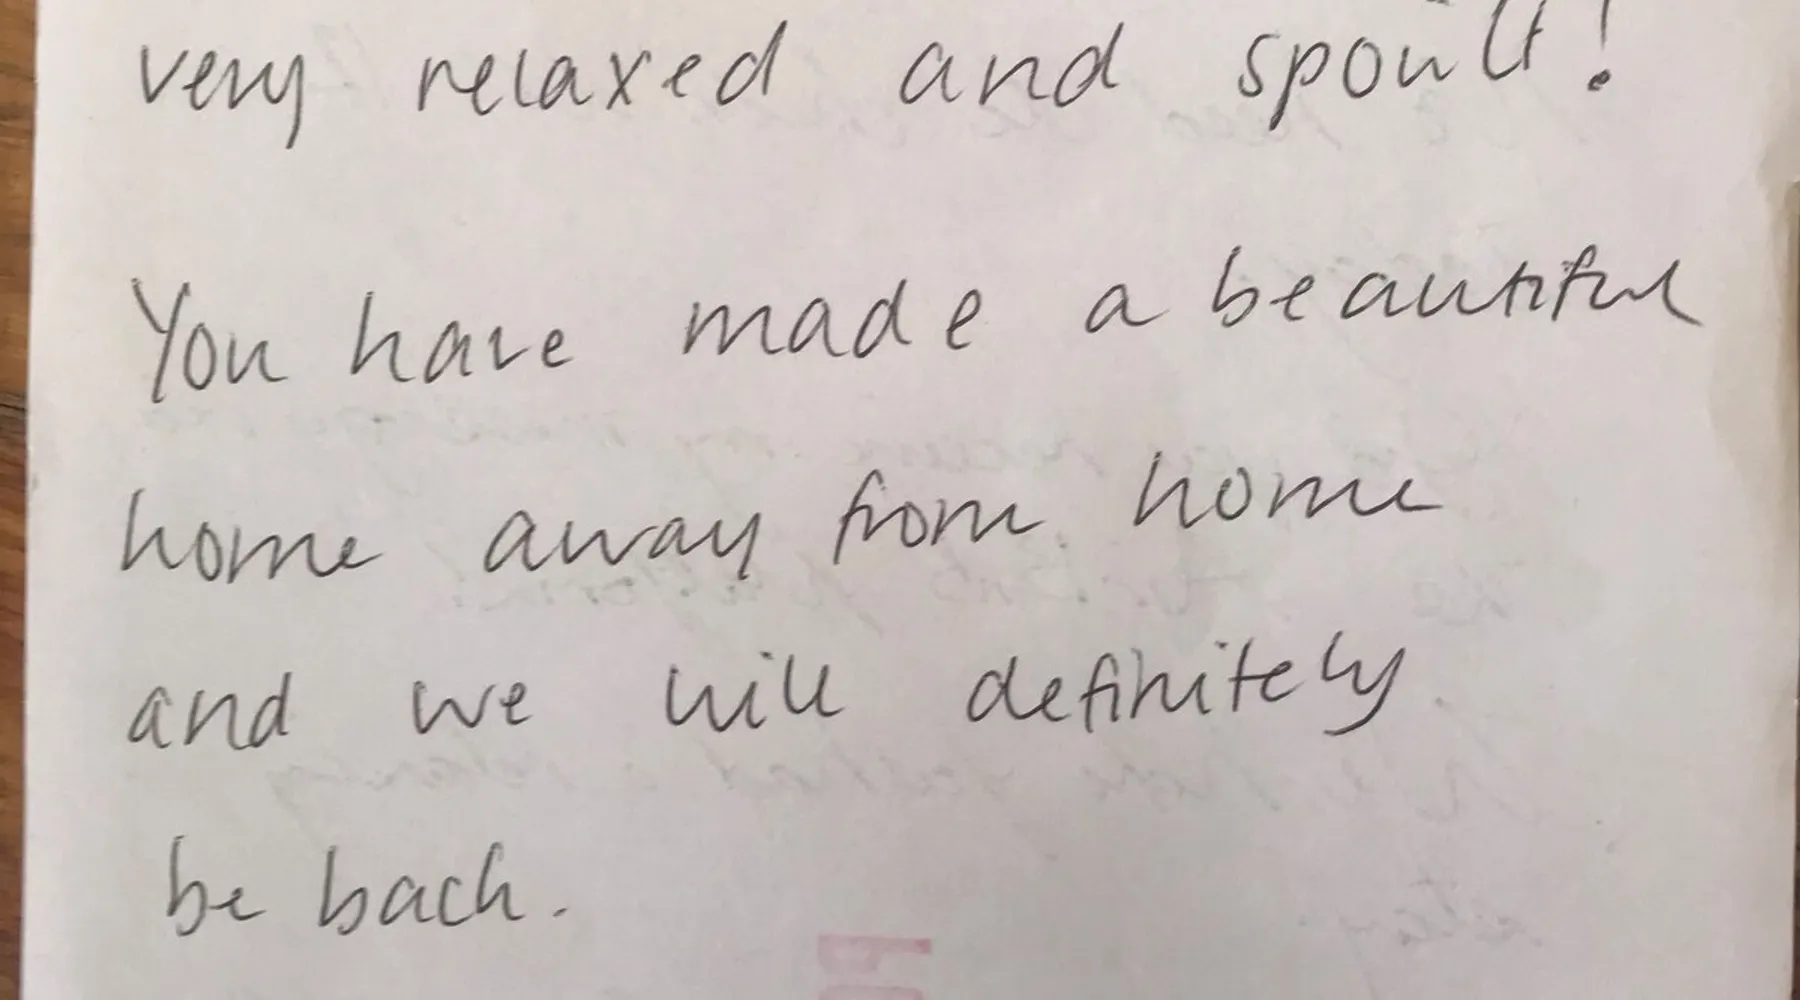 very relaxed and spoilt!
You have made a beautiful
home away from home
and we will definitely
be back.